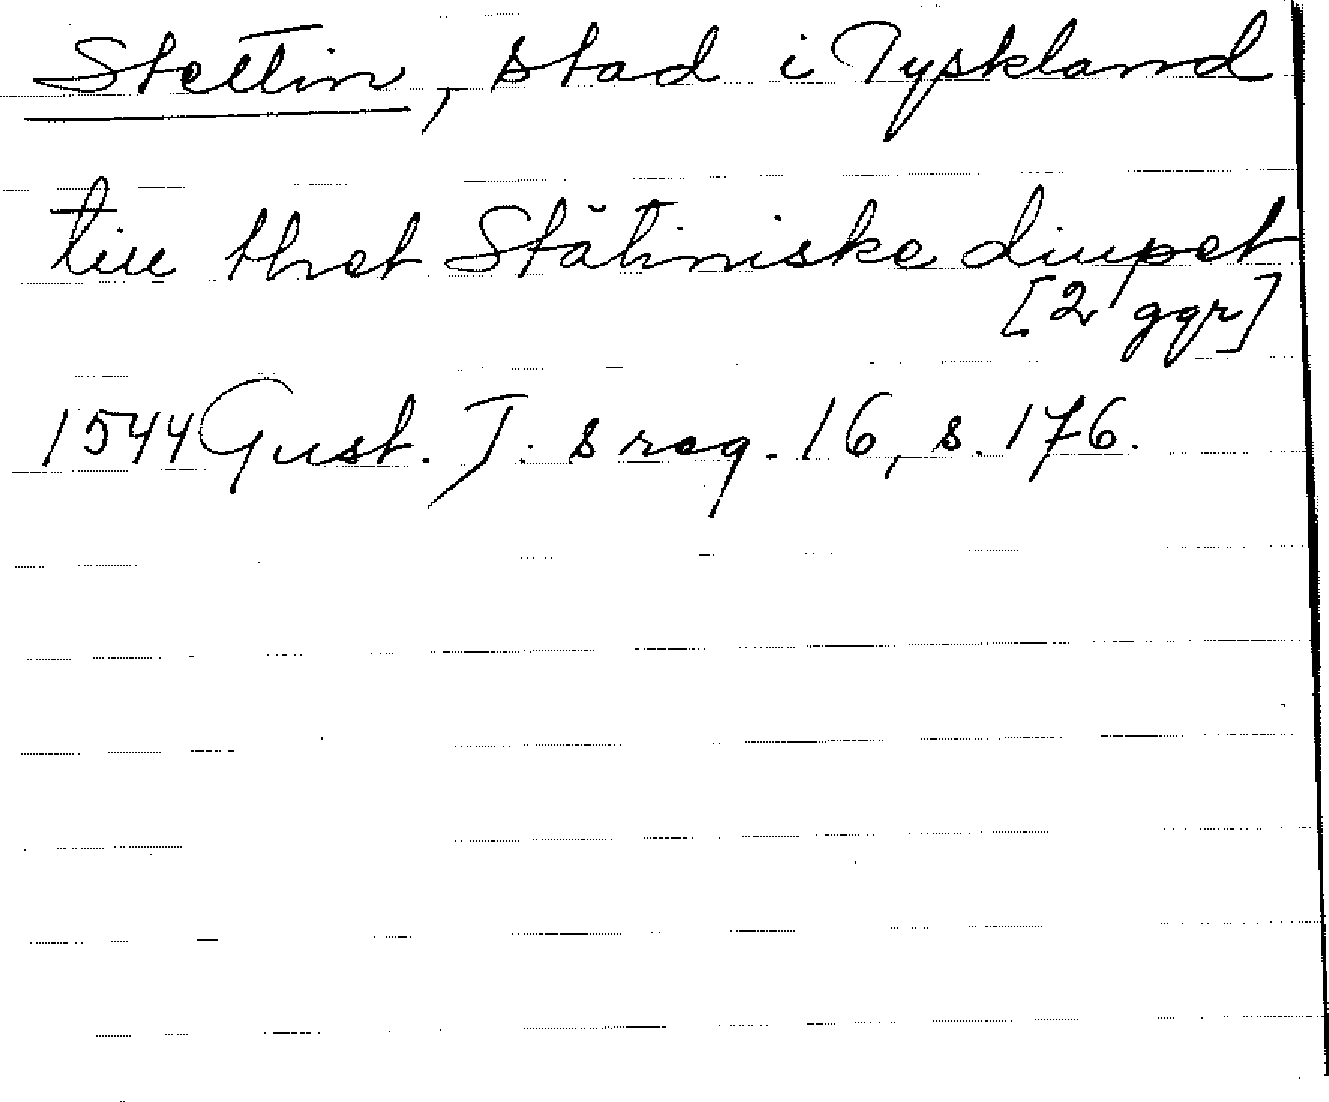 Stettin, stad i Tyskland
till thet Stätiniske diupet
[2 ggr]
1544 Gust. I:s reg. 16, s. 176.